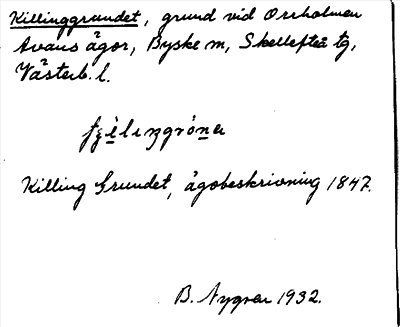 Killinggrundet, grund vid Orrholmen
Avans ägor, Byske m, Skellefteå tg,
Västerb. l.
Killing Grundet, ägobeskrivning 1847.
B. Nygren 1932.